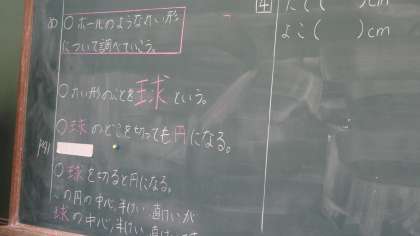 め
○ボールのようなまるい形
について調べていこう。
○まるい形のことを球という。
○球のどこを切っても円になる。
○球を切ると円になる。
この円の中心、半けい、直けいが
球の中心、半けい、直けい
4
たて(　)cm
よこ(　)cm